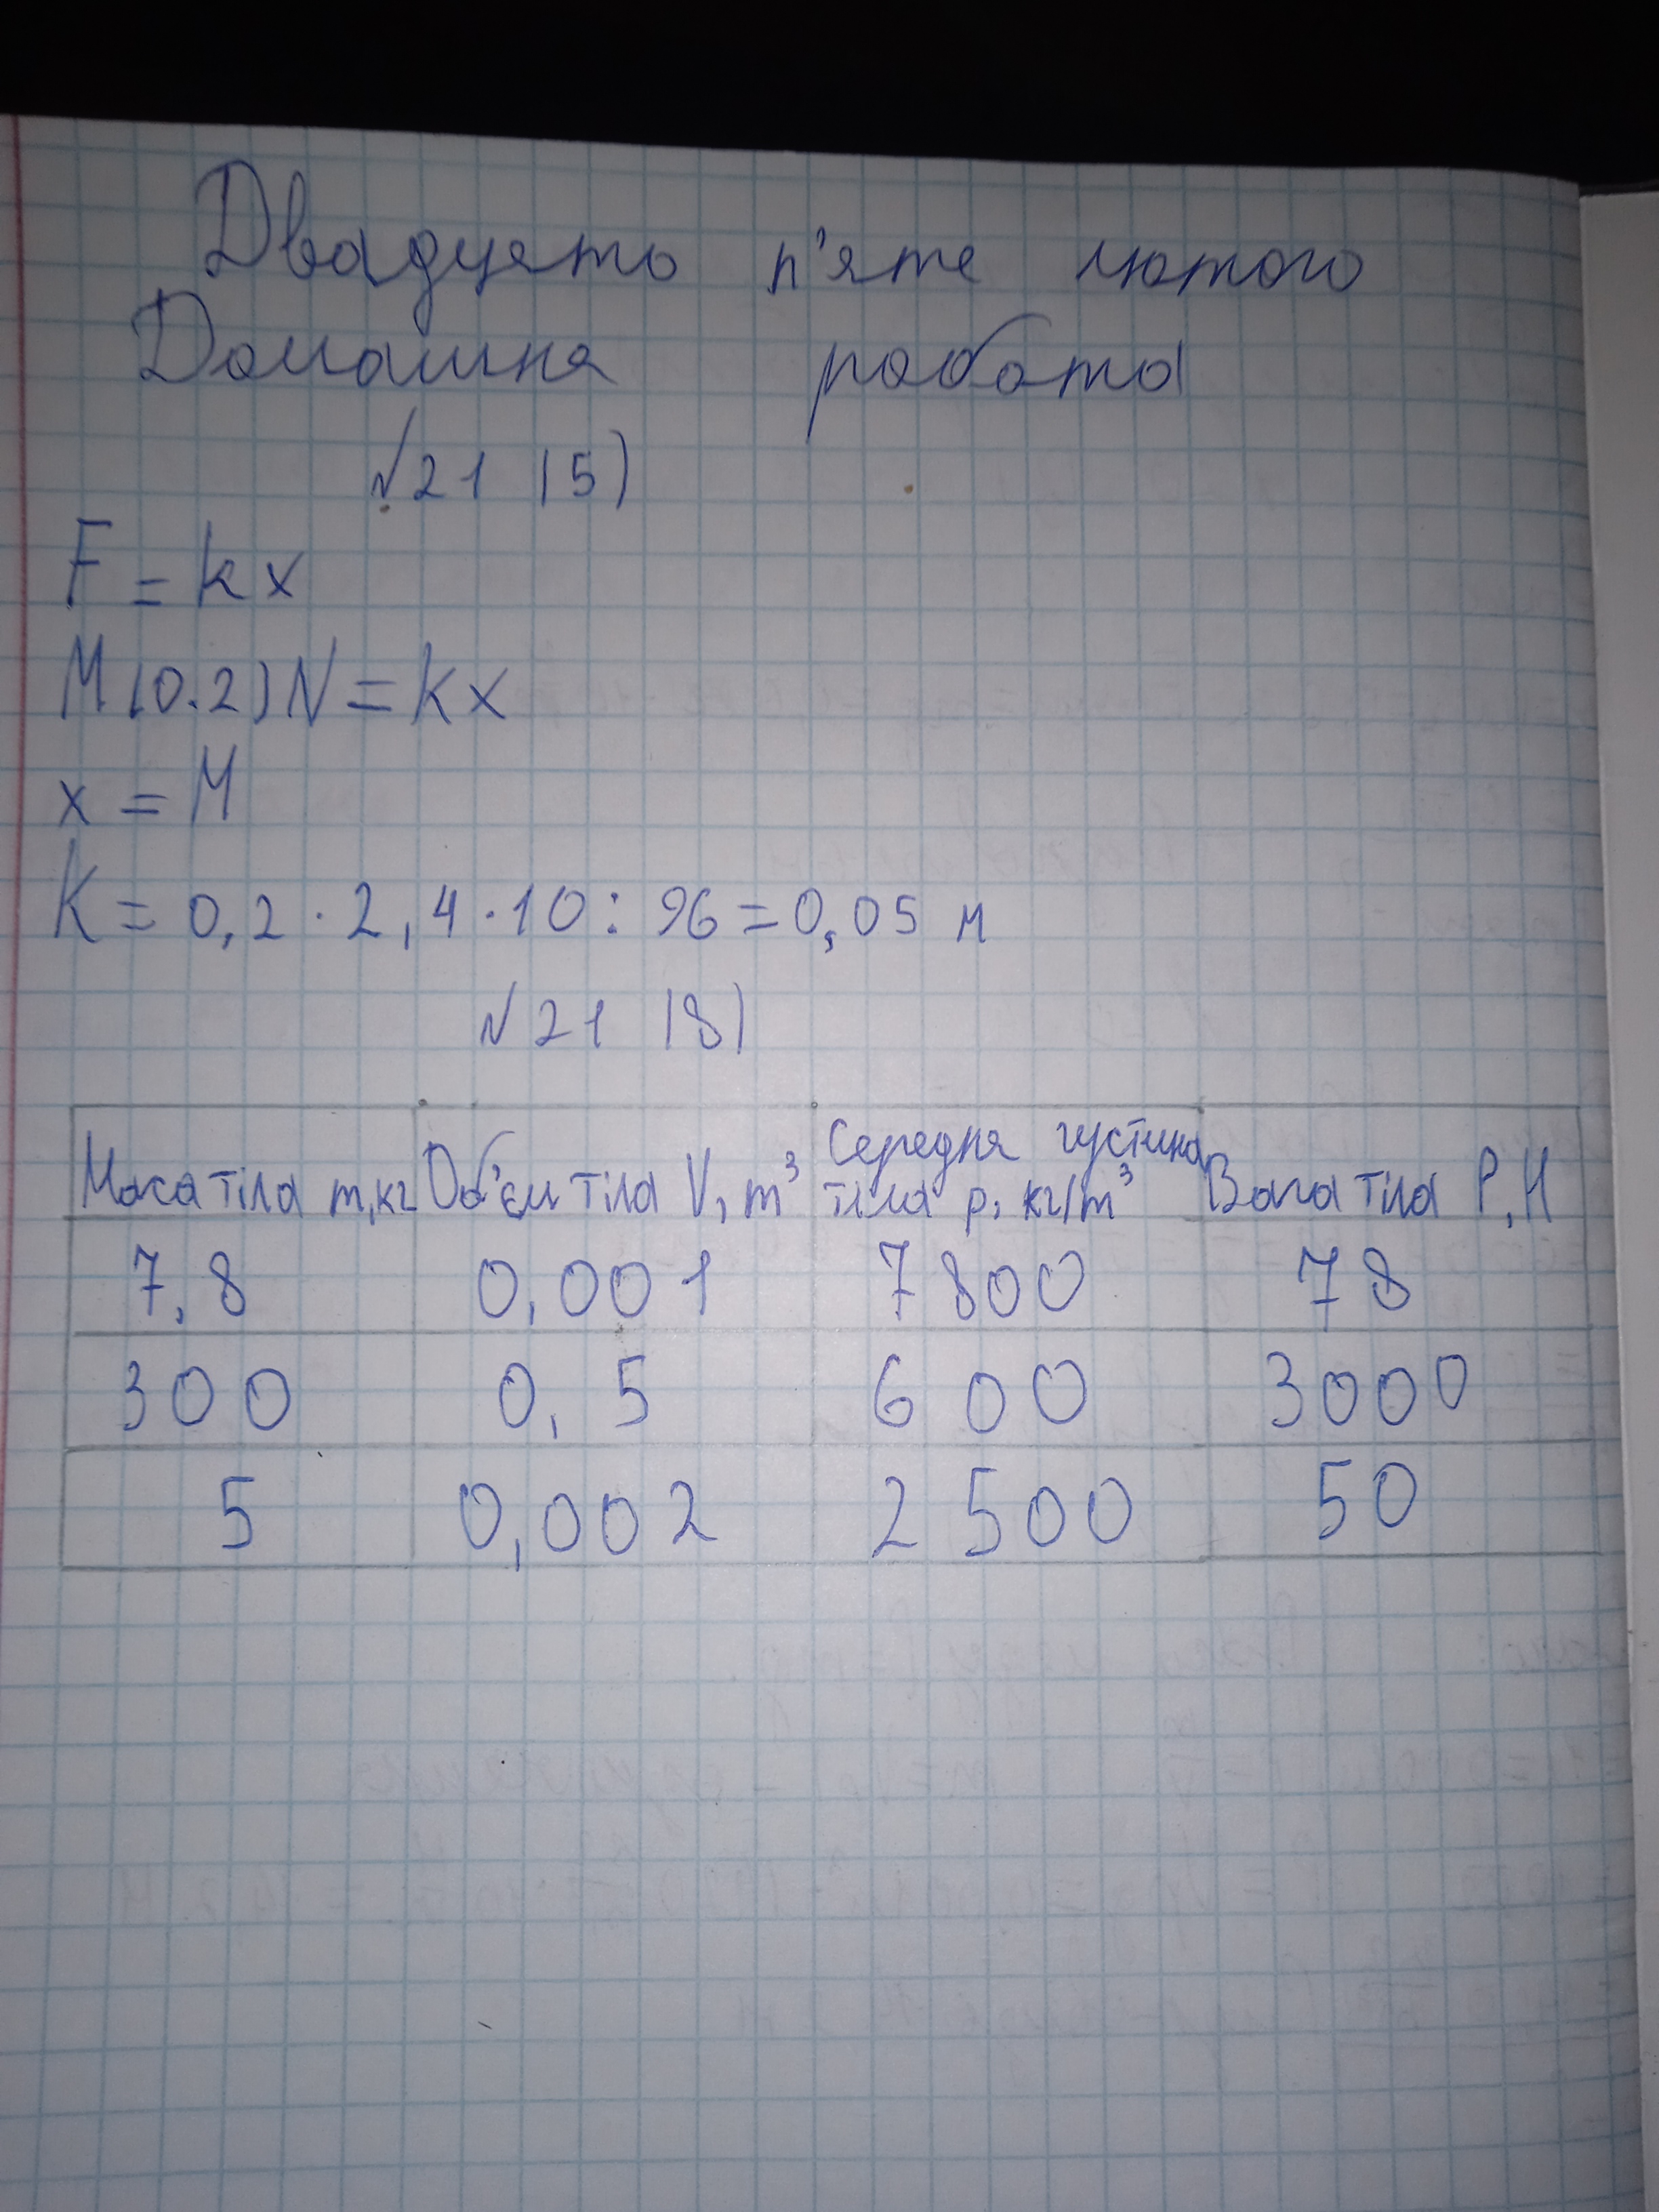 Двадцять п'яте лютого
Домашня робота
№21 (5)
F = kx
M(0.2)N = kx
x = M
K = 0,2 · 2,4 · 10 : 96 = 0,05 м
№21 (8)
Маса тіла m, кг Об'єм тіла V, m³ Середня густина тіла ρ, кг/m³ Вага тіла P, H
7,8 0,001 7800 78
300 0,5 600 3000
5 0,002 2500 50